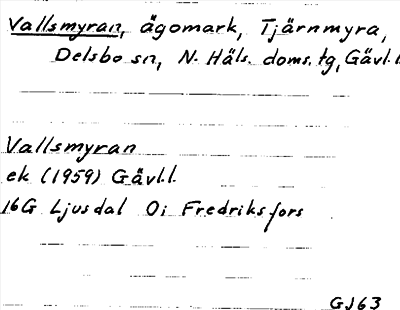 Vallsmyran, ägomark, Tjärnmyra,
Delsbo sn, N. Häls. doms. tg, Gävl.l.
Vallsmyran
ek (1959) Gävl.l.
16G Ljusdal 0i Fredriksfors
GJ63